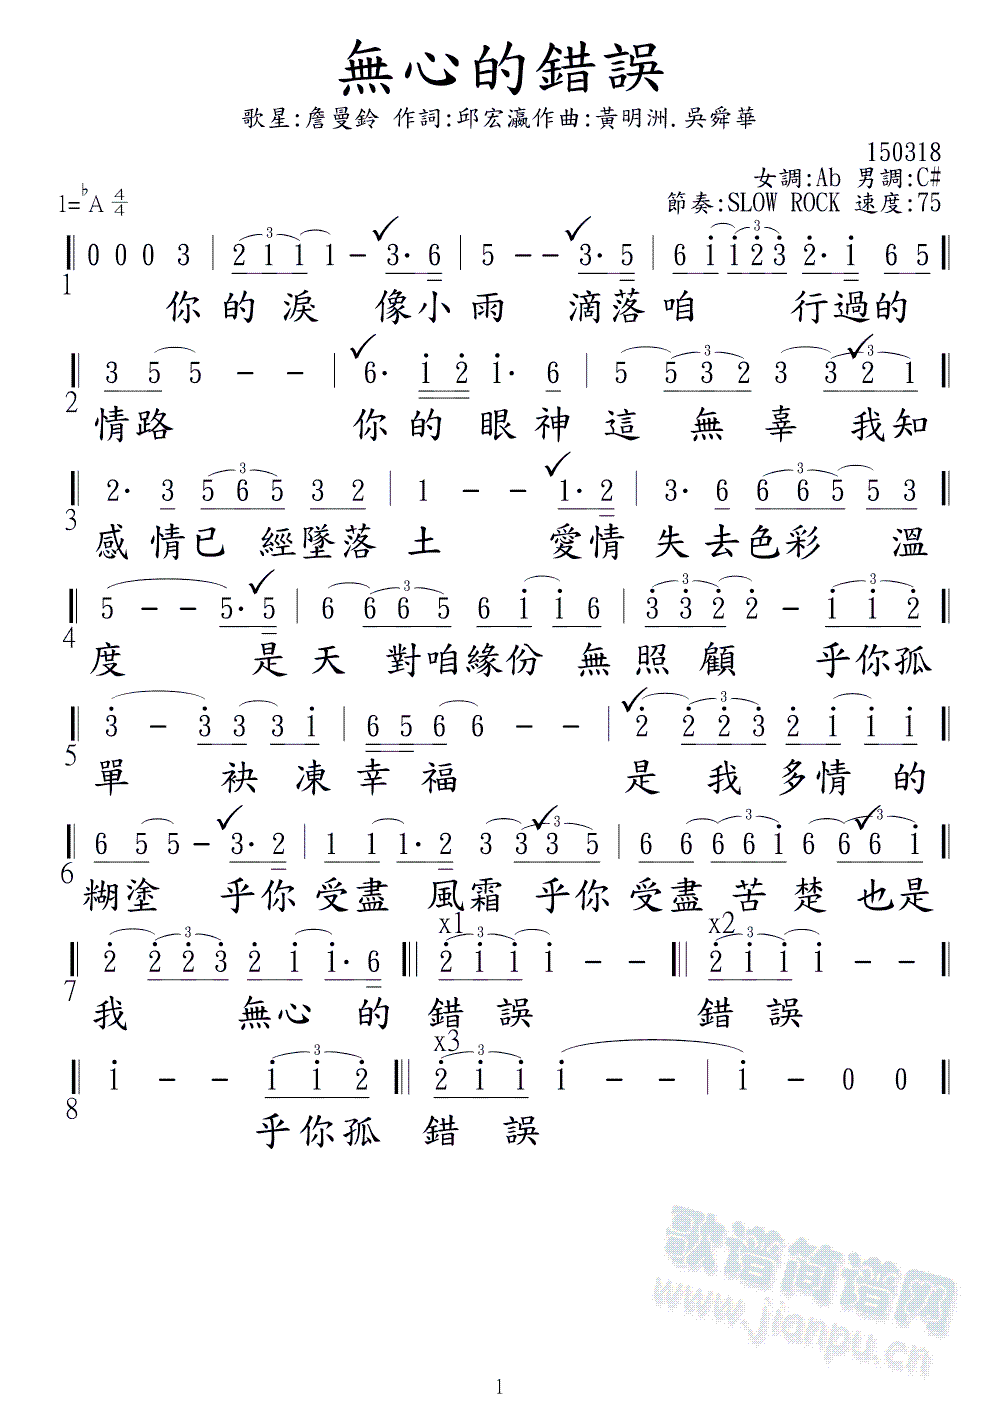 無心的錯誤
歌星:詹曼鈴 作詞:邱宏瀛作曲:黃明洲.吳舜華
150318
女調:Ab 男調:C#
1=♭A 4/4 節奏:SLOW ROCK 速度:75
0 0 0 3 | 2 1 1 1 - 3· 6 | 5 - - 3· 5 | 6 i i 2 3 2· i 6 5
1 你的淚 像小雨 滴落咱 行過的
3 5 5 - - | 6· i 2 i· 6 | 5 5 3 2 3 3 2 1
2 情路 你的眼神這無辜 我知
2· 3 5 6 5 3 2 | 1 - - 1· 2 | 3· 6 6 6 5 5 3
3 感情已經墜落土 愛情失去色彩 溫
5 - - 5· 5 | 6 6 6 5 6 i i 6 | 3 3 2 2 - i i 2
4 度 是天 對咱緣份無照顧 乎你孤
3 - 3 3 3 i | 6 5 6 6 - - | 2 2 2 3 2 i i i
5 單 袂凍幸福 是我多情的
6 5 5 - 3· 2 | 1 1 1· 2 3 3 3 5 | 6 6 6 6 i 6 6 6 i
6 糊塗 乎你受盡 風霜乎你受盡苦楚也是
x1 x2
2 2 2 3 2 i i· 6 2 i i i - - 2 i i i - -
7 我 無心的錯誤 錯誤
x3
i - - i i 2 2 i i i - | i - 0 0
8 乎你孤 錯誤
歌谱简谱网
www.jianpu.cn
1